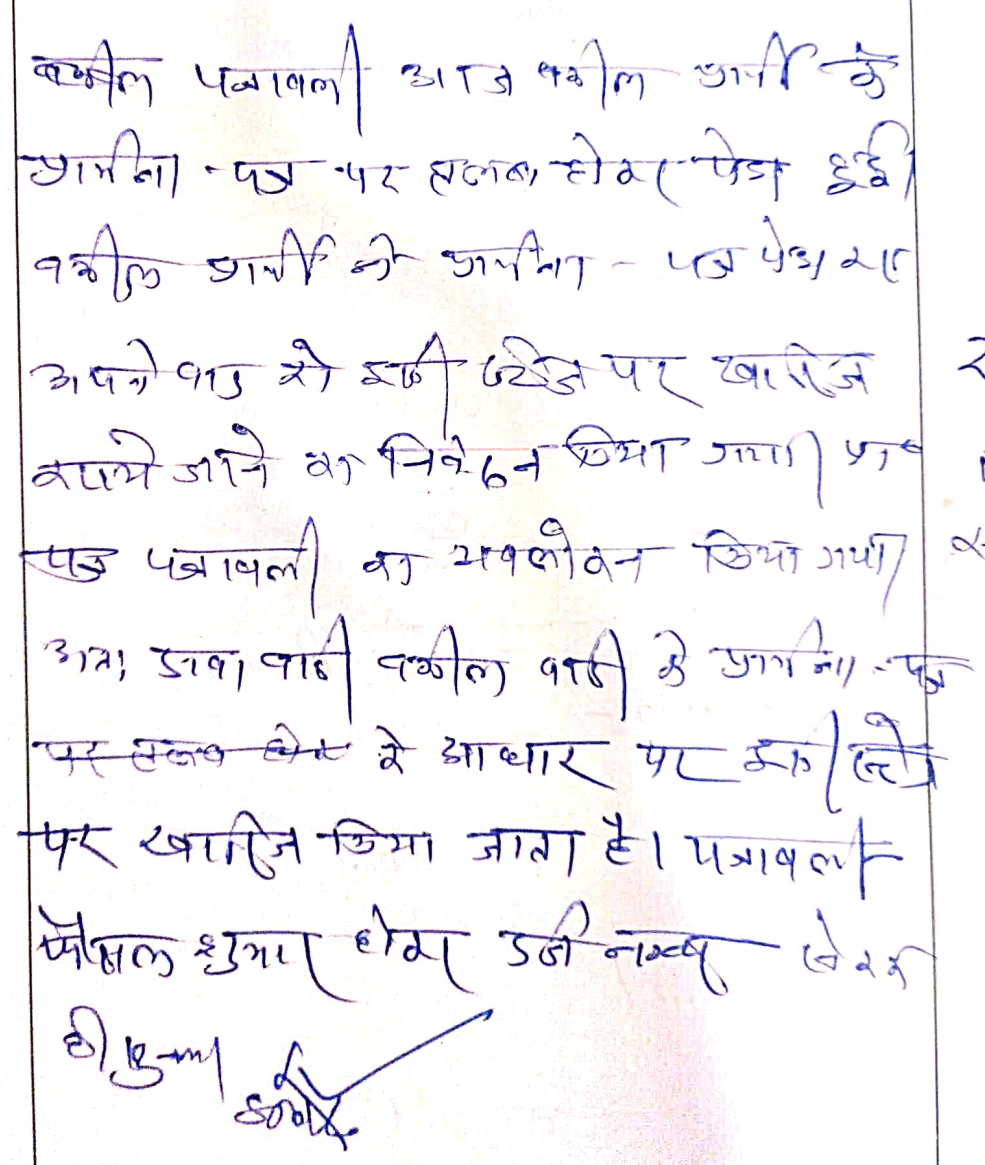 पत्रावली आज वकील प्रार्थी के
प्रार्थना-पत्र पर तलब होकर पेश हुई।
वकील प्रार्थी ने प्रार्थना-पत्र पेश कर
अपने वाद को इसी स्टेज पर खारिज
कराये जाने का निवेदन किया गया। प्रा०
पत्र पत्रावली का अवलोकन किया गया।
अतः दावा वादी वकील वादी के प्रार्थना-पत्र
पर तलब होकर के आधार पर इसी स्टेज
पर खारिज किया जाता है। पत्रावली
फैसल शुमार होकर नम्बर